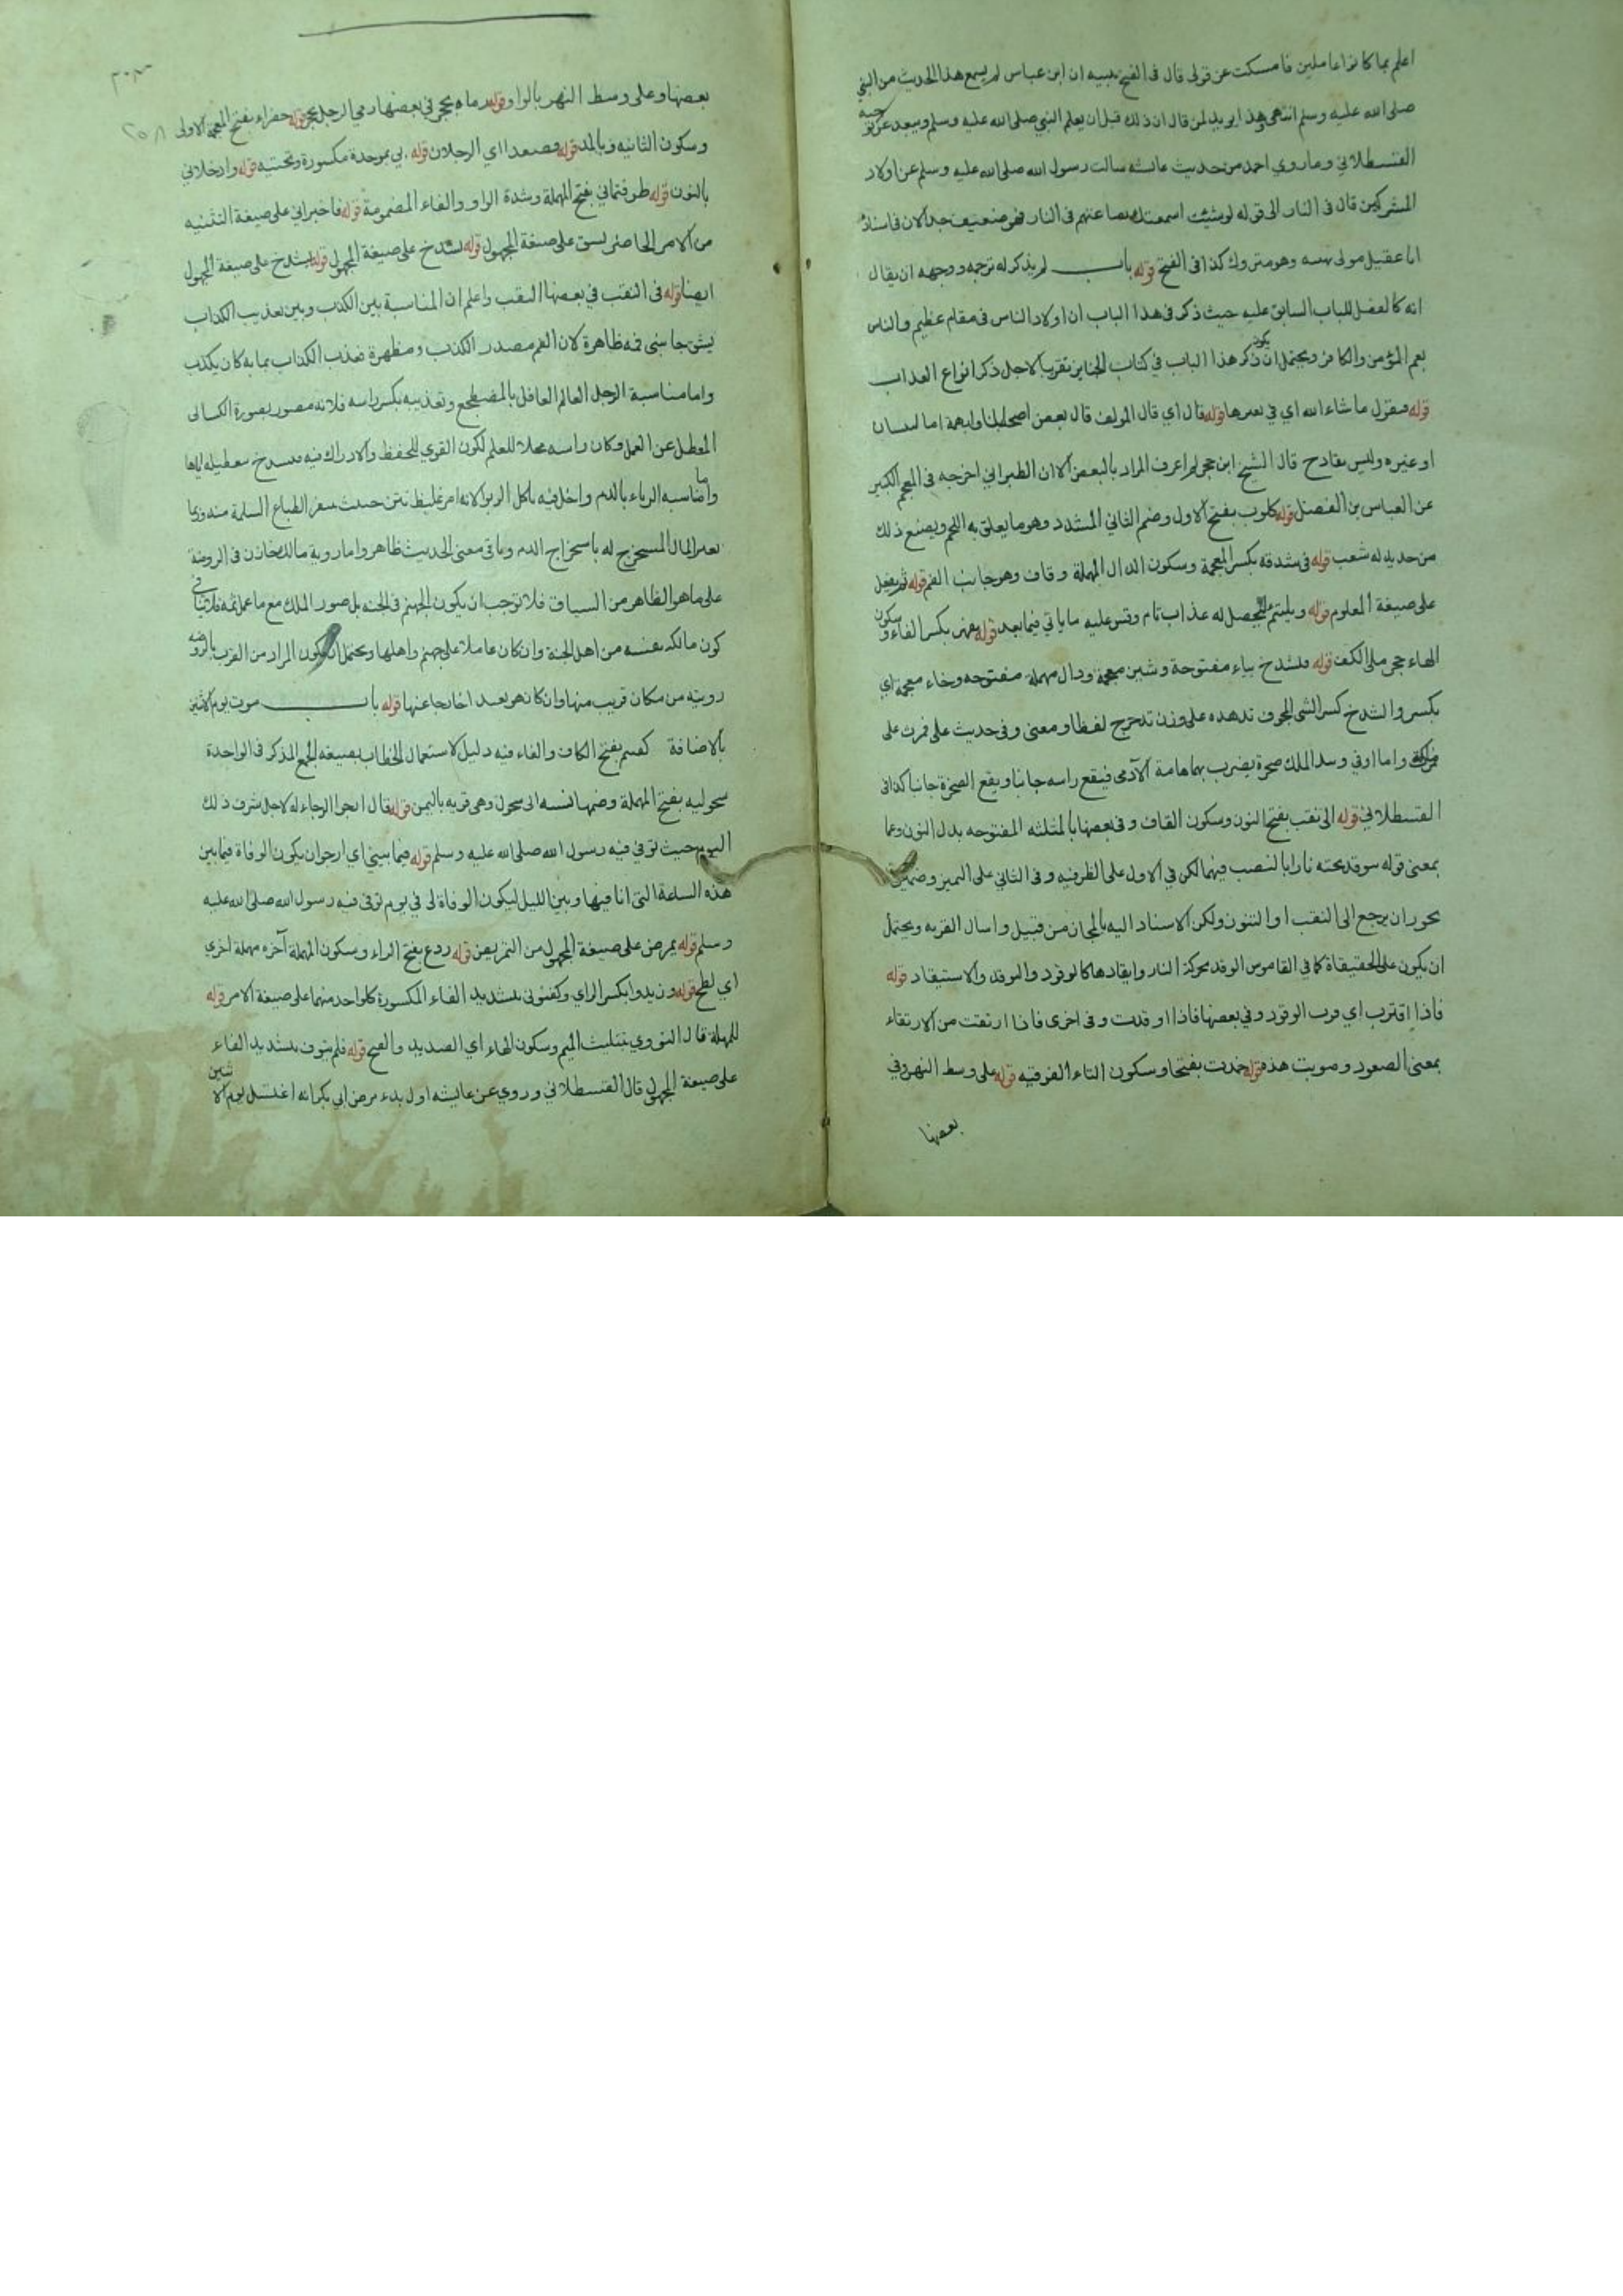 اعلم بما كانوا عاملين فامسكت عن قولى قال فى الفتح نبيه ان ابن عباس لم يسمع هذا الحديث من النبي
صلى الله عليه وسلم انتهى وهذا يريد لمن قال ان ذلك قبل ان يعلم النبي صلى الله عليه وسلم
القسطلاني وما روي احمد من حديث عائشه سالت رسول الله صلى الله عليه وسلم عن اولاد
المشركين قال فى النار الى قوله لو شئت اسمعتك تضاغيهم فى النار فهو ضعيف جدا لان فى اسناده
ابا عقيل مولى بهيه وهو متروك كذا فى الفتح قوله باب لم يذكر له ترجمه ووجهه ان يقال
انه كالفصل للباب السابق عليه حيث ذكر فى هذا الباب ان اولاد الناس فى مقام عظيم والناس
يعم المؤمن والكافر ويحتمل ان يكون ذكر هذا الباب في كتاب الجنايز تقريبا لاجل ذكر انواع العذاب
قوله فيقول ما شاء الله اي في تعبيرها قوله قال اي قال المولف قال بعض اصحابنا وابهمه اما لنسيان
او غيره وليس بقادح قال الشيخ ابن حجر لم اعرف المراد بالبعض الا ان الطبراني اخرجه فى المعجم الكبير
عن العباس بن الفضل قوله كلوب بفتح الاول وضم الثاني المشدد وهو ما يعلق به اللحم ويصنع ذلك
من حديد له شعب قوله فى شدقه بكسر المعجمة وسكون الدال المهملة وقاف وهو جانب الفم قوله ثم يفعل
على صيغة المعلوم قوله ويلتئم ليحصل له عذاب تام وقس عليه ما ياتي فيما بعد قوله بفهر بكسر الفاء وسكون
الهاء حجر ملا الكف قوله فيشدخ بياء مفتوحة وشين معجمة ودال مهملة مفتوحه وخاء معجمة اي
يكسر والشدخ كسر الشى الجوف تدهده على وزن تدحرج لفظا ومعنى وفى حديث على فمررت على
ملك واما اوفي وبيد الملك صخرة يضرب بها هامة الآدمى فيقع راسه جانبا ويقع الصخرة جانبا كذا فى
القسطلاني قوله الى نقب بفتح النون وسكون القاف وفى بعضها بالمثلثه المفتوحه بدل النون وهما
بمعنى قوله يتوقد تحته نارا بالنصب فيهما لكن في الاول على الظرفيه وفى الثاني على التميز وضمير
يجوز ان يرجع الى النقب او التنور ولكن الاسناد اليه بالمجاز من قبيل واسال القريه ويحتمل
ان يكون على الحقيقة كما في القاموس الوقد محركة النار وايقادها كالوقود والتوقد والاستيقاد قوله
فاذا اقترب اي قرب الوقود وفي بعضها فاذا اوقدت وفى اخرى فاذا ارتقت من الارتقاء
بمعنى الصعود وصوبت هذه قوله خمدت بفتحها وسكون التاء الفوقيه قوله على وسط النهر وفي
بعضها
٣٠٣
٢٥٨
بعضها وعلى وسط النهر بالواو قوله رماه بحجر في بعضها رمى الرجل بحجر قوله خضراء بفتح المعجمة الاولى
وسكون الثانيه وبالمد قوله فصعدا اي الرجلان قوله بي بموحدة مكسورة وتحتيه قوله وادخلاني
بالنون قوله طوفتماني بفتح المهملة وشدة الواو والفاء المضمومة قوله فاخبراني على صيغة التثنيه
من الامر الحاضر يشق على صيغة المجهول قوله يشدخ على صيغة المجهول قوله يشدخ على صيغة المجهول
ايضا قوله فى النقب في بعضها الثقب واعلم ان المناسبة بين الكذب وبين تعذيب الكذاب
بشق جانبي فمه ظاهرة لان الفم مصدر الكذب ومظهرة فعذب الكذاب بما به كان يكذب
واما مناسبة الرجل العالم الغافل بالمضطجع وتعذيبه بكسر راسه فلانه مصور بصورة الكسالى
المعطل عن العمل وكان راسه محلا للعلم لكون القوي للحفظ والادراك فيه فيشدخ تعطيله اياها
واما مناسبه الرباء بالدم واخل فيه باكل الربى لانه امر غليظ نتن خبيث ينفر الطباع السليمة منه وربما
يعبر المال المستخرج له باستخراج الدم وباقى معنى الحديث ظاهر واما روية مالك خازن فى الروضة
على ما هو الظاهر من السياق فلا توجب ان يكون الجهنم فى الجنه بل صور الملك مع ما عمل ثمه فلا ينافى
كون مالكه نفسه من اهل الجنة وان كان عاملا على جهنم واهلها ويحتمل ان يكون المراد من القرب بالروضه
رويته من مكان قريب منها وان كان هو بعيدا خارجا عنها قوله باب موت يوم الاثنين
بالاضافة كفنتم بفتح الكاف والفاء فيه دليل لاستعمال الخطاب بصيغه الجمع المذكر فى الواحدة
سحوليه بفتح المهملة وضمها نسبه الى سحول وهى قريه باليمن قوله قال ارجوا الرجاء له لاجل شرف ذلك
اليوم حيث توفي فيه رسول الله صلى الله عليه وسلم قوله فيما بيني اي ارجوان يكون الوفاة فيما بين
هذه الساعة التى انا فيها وبين الليل ليكون الوفاة لى في يوم توفى فيه رسول الله صلى الله عليه
وسلم قوله يمرض على صيغة المجهول من التمريض قوله ردع بفتح الراء وسكون المهملة آخره مهملة اخرى
اي لطخ قوله وزيدوا بكسر الزاي وكفنوني بتشديد الفاء المكسورة كلواحد منهما على صيغة الامر قوله
للمهلة قال النووي بتثليث الميم وسكون الهاء اي الصديد والقيح قوله فلم يتوف بتشديد الفاء
على صيغة المجهول قال القسطلاني وروي عن عائشه اول بدء مرض ابي بكر انه اغتسل يوم الاثنين